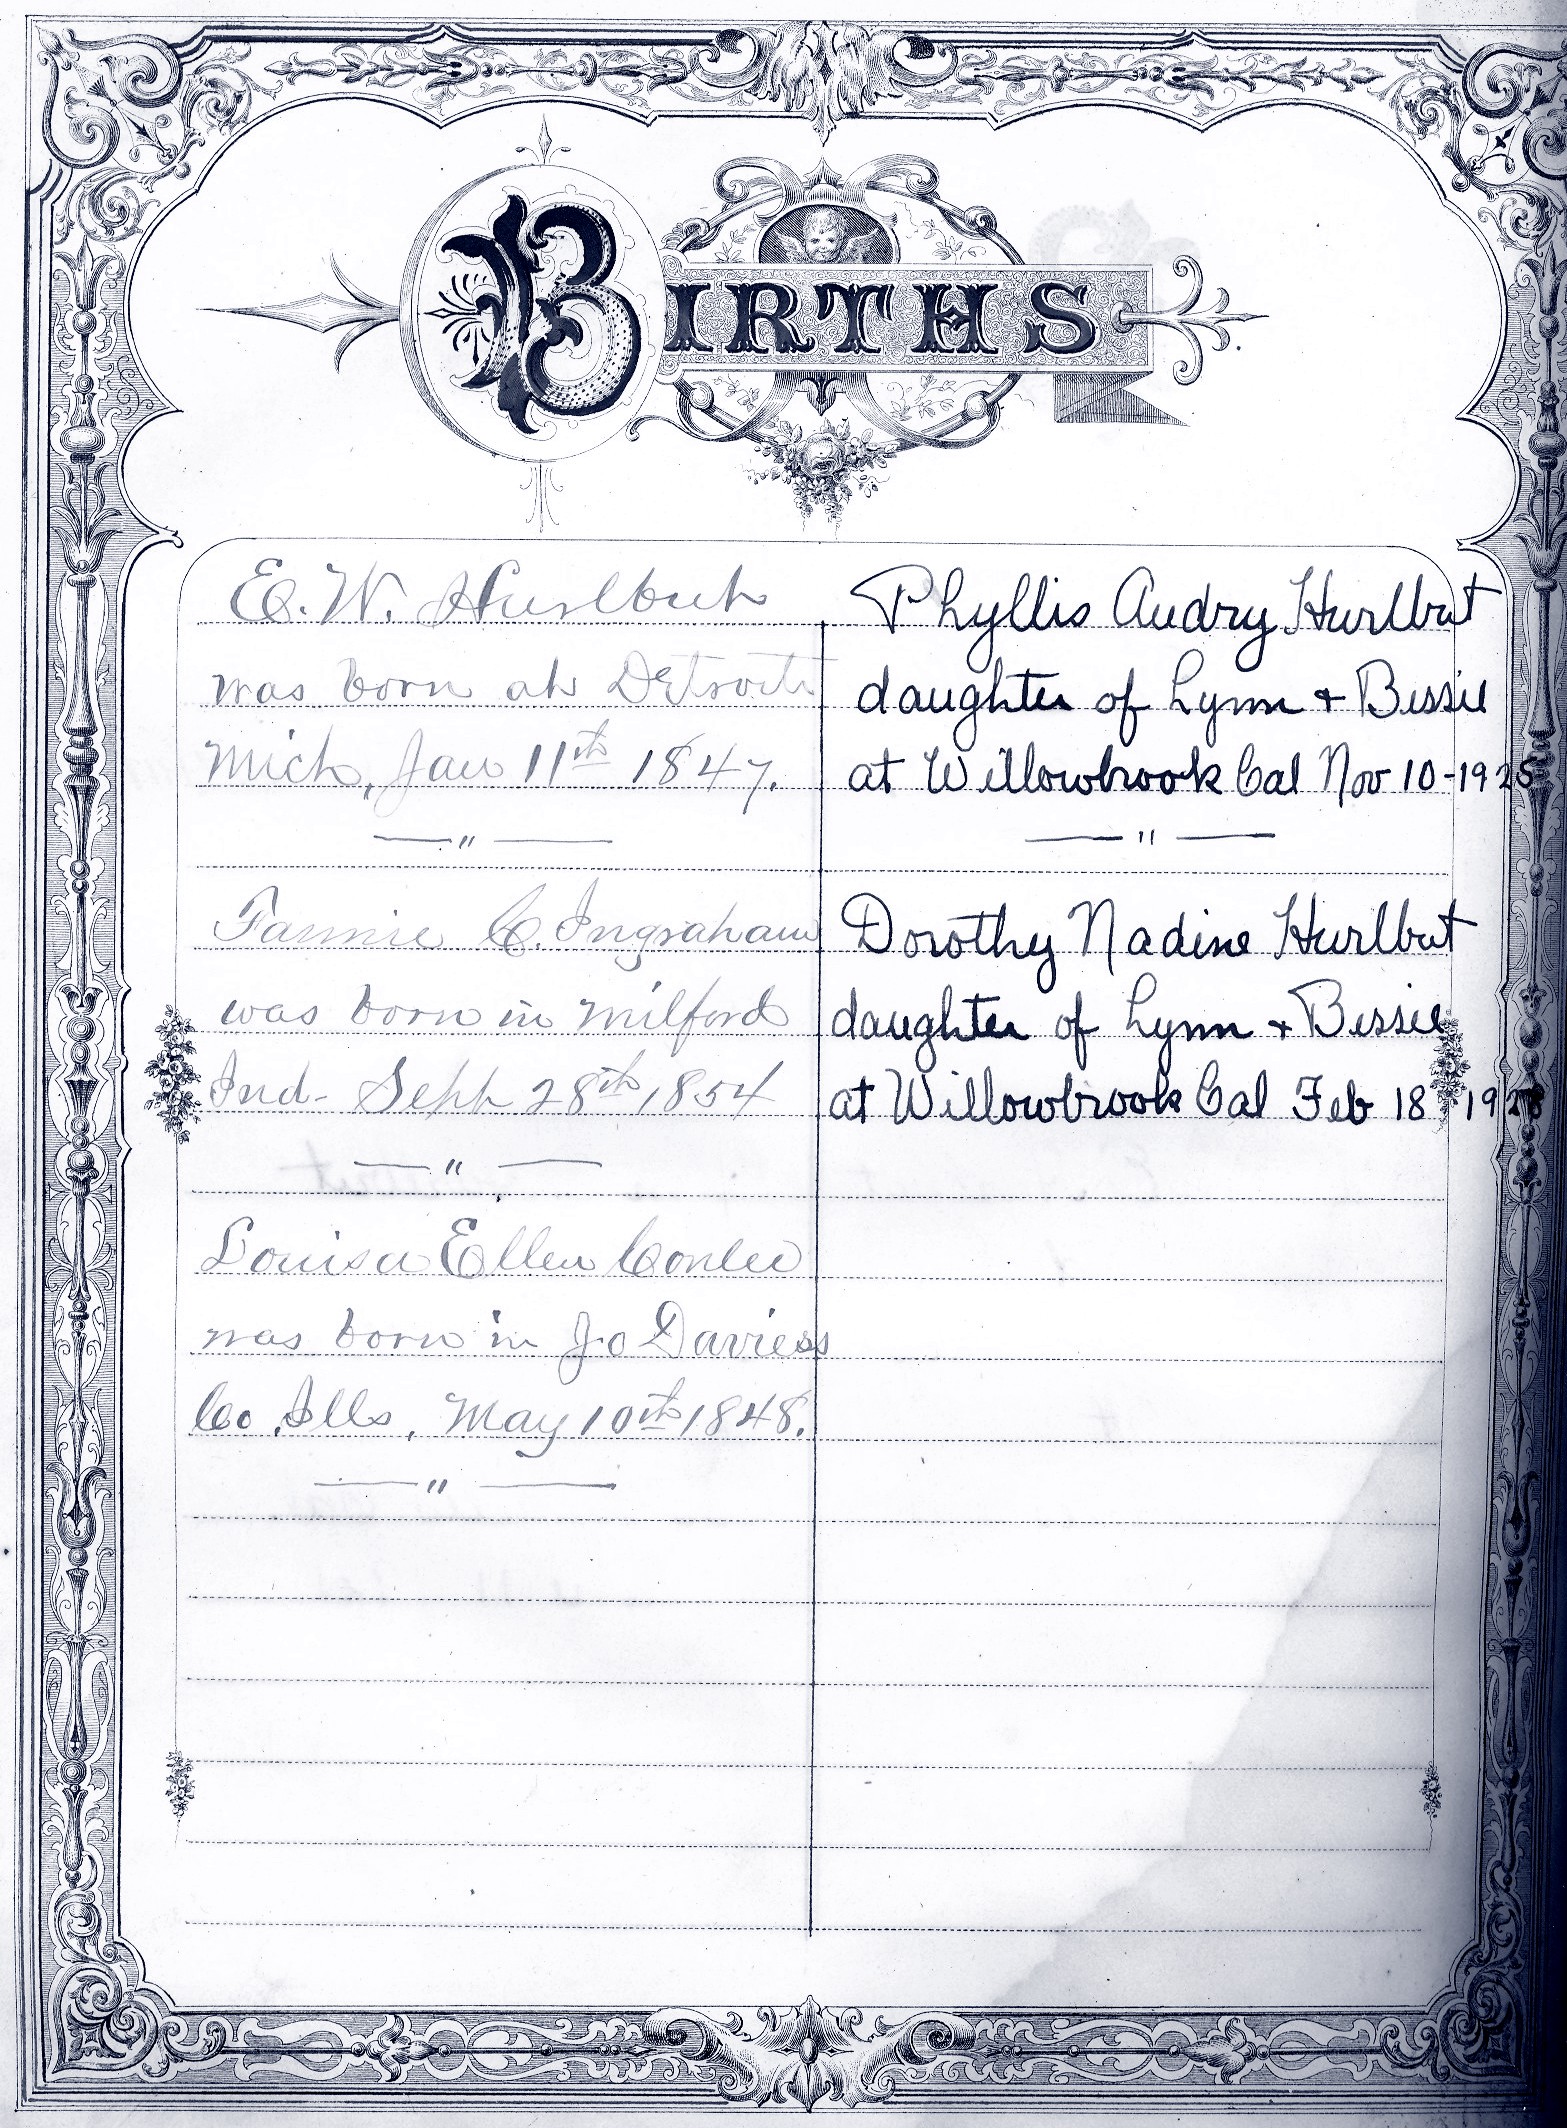 BIRTHS
E. W. Hurlbut
was born at Detroit
Mich, Jan 11th 1847.
— " —
Fannie C. Ingraham
was born in Milford
Ind- Sept 28th 1854
— " —
Louisa Ellen Conlee
was born in Jo Daviess
Co. Ills, May 10th 1848.
— " —
Phyllis Audry Hurlbut
daughter of Lynn + Bessie
at Willowbrook Cal Nov 10-1925
— " —
Dorothy Nadine Hurlbut
daughter of Lynn + Bessie
at Willowbrook Cal Feb 18